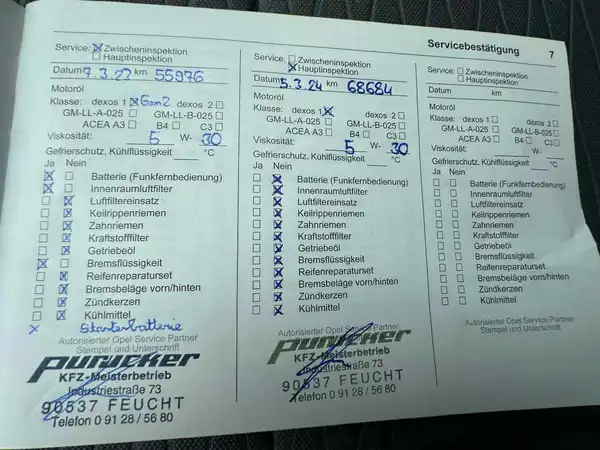 Servicebestätigung 7
Service: ☒ Zwischeninspektion
☐ Hauptinspektion
Datum 7.3.23 km 55976
Motoröl
Klasse: dexos 1 ☒ Gen2 dexos 2 ☐
GM-LL-A-025 ☐ GM-LL-B-025 ☐
ACEA A3 ☐ B4 ☐ C3 ☐
Viskosität: 5 W- 30
Gefrierschutz, Kühlflüssigkeit °C
Ja Nein
☒ ☐ Batterie (Funkfernbedienung)
☒ ☐ Innenraumluftfilter
☐ ☒ Luftfiltereinsatz
☐ ☒ Keilrippenriemen
☐ ☒ Zahnriemen
☐ ☒ Kraftstofffilter
☐ ☒ Getriebeöl
☒ ☐ Bremsflüssigkeit
☐ ☒ Reifenreparaturset
☐ ☒ Bremsbeläge vorn/hinten
☐ ☒ Zündkerzen
☐ ☒ Kühlmittel
x Starterbatterie
Autorisierter Opel Service Partner
Stempel und Unterschrift
purucker
KFZ-Meisterbetrieb
Industriestraße 73
90537 FEUCHT
Telefon 0 91 28 / 56 80
Service: ☐ Zwischeninspektion
☒ Hauptinspektion
Datum 5.3.24 km 68684
Motoröl
Klasse: dexos 1 ☒ dexos 2 ☐
GM-LL-A-025 ☐ GM-LL-B-025 ☐
ACEA A3 ☐ B4 ☐ C3 ☐
Viskosität: 5 W- 30
Gefrierschutz, Kühlflüssigkeit °C
Ja Nein
☐ ☒ Batterie (Funkfernbedienung)
☐ ☒ Innenraumluftfilter
☐ ☒ Luftfiltereinsatz
☐ ☒ Keilrippenriemen
☐ ☒ Zahnriemen
☐ ☒ Kraftstofffilter
☐ ☒ Getriebeöl
☐ ☒ Bremsflüssigkeit
☐ ☒ Reifenreparaturset
☐ ☒ Bremsbeläge vorn/hinten
☐ ☒ Zündkerzen
☐ ☒ Kühlmittel
Autorisierter Opel Service Partner
Stempel und Unterschrift
purucker
KFZ-Meisterbetrieb
Industriestraße 73
90537 FEUCHT
Telefon 0 91 28 / 56 80
Service: ☐ Zwischeninspektion
☐ Hauptinspektion
Datum km
Motoröl
Klasse: dexos 1 ☐ dexos 2 ☐
GM-LL-A-025 ☐ GM-LL-B-025 ☐
ACEA A3 ☐ B4 ☐ C3 ☐
Viskosität: W-
Gefrierschutz, Kühlflüssigkeit °C
Ja Nein
☐ ☐ Batterie (Funkfernbedienung)
☐ ☐ Innenraumluftfilter
☐ ☐ Luftfiltereinsatz
☐ ☐ Keilrippenriemen
☐ ☐ Zahnriemen
☐ ☐ Kraftstofffilter
☐ ☐ Getriebeöl
☐ ☐ Bremsflüssigkeit
☐ ☐ Reifenreparaturset
☐ ☐ Bremsbeläge vorn/hinten
☐ ☐ Zündkerzen
☐ ☐ Kühlmittel
Autorisierter Opel Service Partner
Stempel und Unterschrift